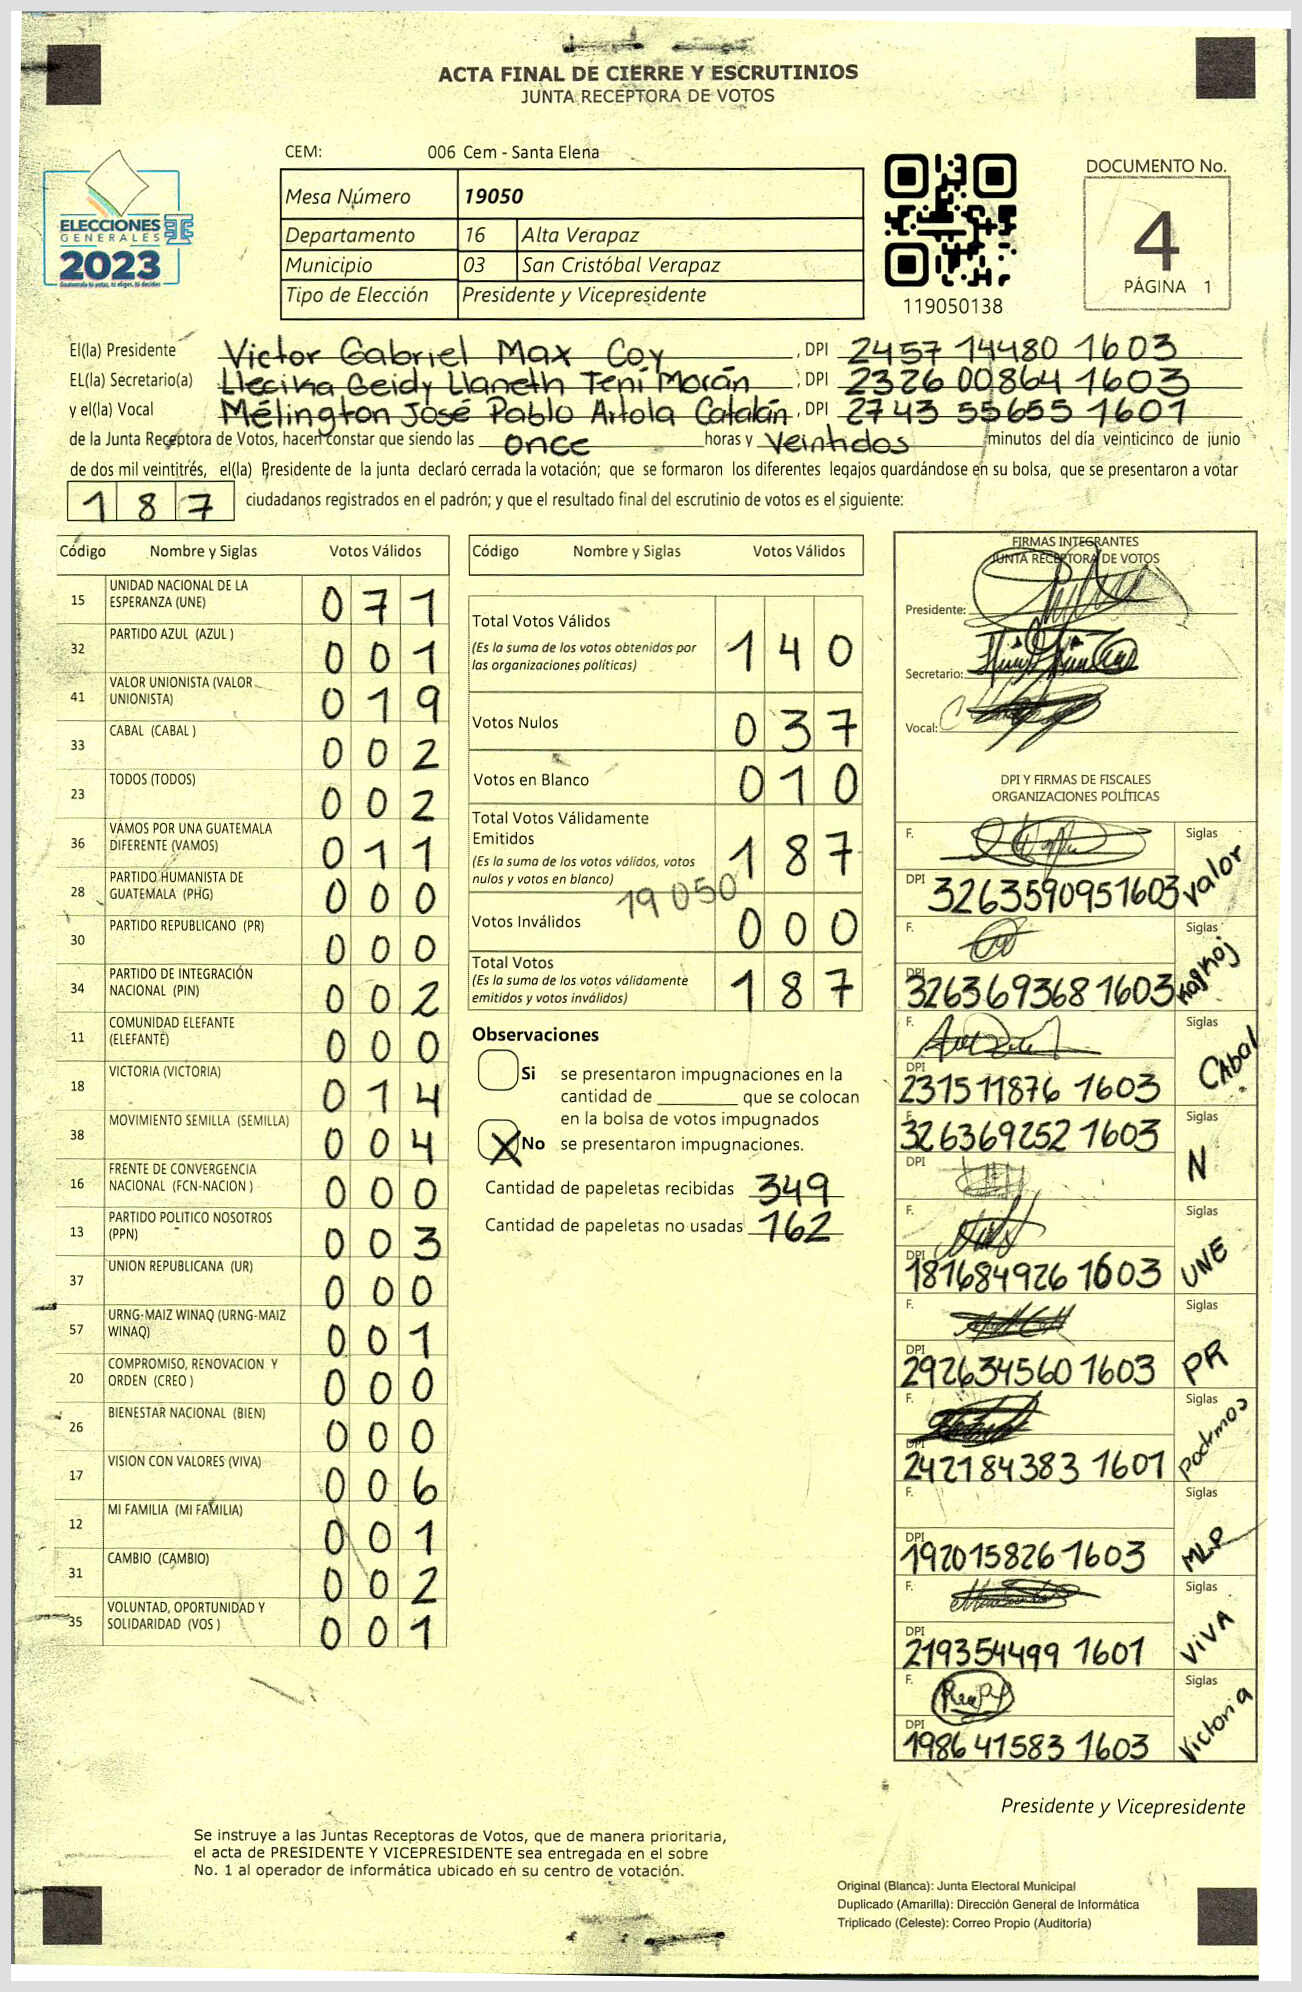 ACTA FINAL DE CIERRE Y ESCRUTINIOS
JUNTA RECEPTORA DE VOTOS
CEM: 006 Cem - Santa Elena
DOCUMENTO No.
4
PÁGINA 1
ELECCIONES
GENERALES
2023
Guatemala tú votas, tú eliges, tú decides
Mesa Número 19050
Departamento 16 Alta Verapaz
Municipio 03 San Cristóbal Verapaz
Tipo de Elección Presidente y Vicepresidente
119050138
El(la) Presidente Victor Gabriel Max Coy, DPI 2457 14480 1603
EL(la) Secretario(a) Llecika Geidy Llaneth Tení Morán, DPI 2326 00864 1603
y el(la) Vocal Mélington José Pablo Artola Catalán, DPI 2743 55655 1601
de la Junta Receptora de Votos, hacen constar que siendo las once horas y Veintidos minutos del día veinticinco de junio
de dos mil veintitrés, el(la) Presidente de la junta declaró cerrada la votación; que se formaron los diferentes legajos quardándose en su bolsa, que se presentaron a votar
187 ciudadanos registrados en el padrón; y que el resultado final del escrutinio de votos es el siguiente:
Código Nombre y Siglas Votos Válidos
15 UNIDAD NACIONAL DE LA ESPERANZA (UNE) 071
32 PARTIDO AZUL (AZUL ) 001
41 VALOR UNIONISTA (VALOR UNIONISTA) 019
33 CABAL (CABAL ) 002
23 TODOS (TODOS) 002
36 VAMOS POR UNA GUATEMALA DIFERENTE (VAMOS) 011
28 PARTIDO HUMANISTA DE GUATEMALA (PHG) 000
30 PARTIDO REPUBLICANO (PR) 000
34 PARTIDO DE INTEGRACIÓN NACIONAL (PIN) 002
11 COMUNIDAD ELEFANTE (ELEFANTE) 000
18 VICTORIA (VICTORIA) 014
38 MOVIMIENTO SEMILLA (SEMILLA) 004
16 FRENTE DE CONVERGENCIA NACIONAL (FCN-NACION ) 000
13 PARTIDO POLITICO NOSOTROS (PPN) 003
37 UNION REPUBLICANA (UR) 000
57 URNG-MAIZ WINAQ (URNG-MAIZ WINAQ) 001
20 COMPROMISO, RENOVACION Y ORDEN (CREO ) 000
26 BIENESTAR NACIONAL (BIEN) 000
17 VISION CON VALORES (VIVA) 006
12 MI FAMILIA (MI FAMILIA) 001
31 CAMBIO (CAMBIO) 002
35 VOLUNTAD, OPORTUNIDAD Y SOLIDARIDAD (VOS ) 001
Código Nombre y Siglas Votos Válidos
Total Votos Válidos 140
(Es la suma de los votos obtenidos por
las organizaciones políticas)
Votos Nulos 037
Votos en Blanco 010
Total Votos Válidamente
Emitidos 187
(Es la suma de los votos válidos, votos
nulos y votos en blanco)
19050
Votos Inválidos 000
Total Votos 187
(Es la suma de los votos válidamente
emitidos y votos inválidos)
Observaciones
Si se presentaron impugnaciones en la
cantidad de ________ que se colocan
en la bolsa de votos impugnados
X No se presentaron impugnaciones.
Cantidad de papeletas recibidas 349
Cantidad de papeletas no usadas 162
FIRMAS INTEGRANTES
JUNTA RECEPTORA DE VOTOS
Presidente:
Secretario:
Vocal:
DPI Y FIRMAS DE FISCALES
ORGANIZACIONES POLÍTICAS
F. Siglas
DPI 3263590951603 Valor
F. Siglas
DPI 326369368 1603
F. Siglas
DPI 231511876 1603 CAbal
F. Siglas
326369252 1603 N
DPI
F. Siglas
DPI 181684926 1603 UNE
F. Siglas
DPI 292634560 1603 PR
F. Siglas
DPI 242184383 1601 Podemos
F. Siglas
DPI 192015826 1603 MLP
F. Siglas
DPI 219354499 1601 VIVA
F. Siglas
DPI 198641583 1603 Victoria
Presidente y Vicepresidente
Se instruye a las Juntas Receptoras de Votos, que de manera prioritaria,
el acta de PRESIDENTE Y VICEPRESIDENTE sea entregada en el sobre
No. 1 al operador de informática ubicado en su centro de votación.
Original (Blanca): Junta Electoral Municipal
Duplicado (Amarilla): Dirección General de Informática
Triplicado (Celeste): Correo Propio (Auditoría)